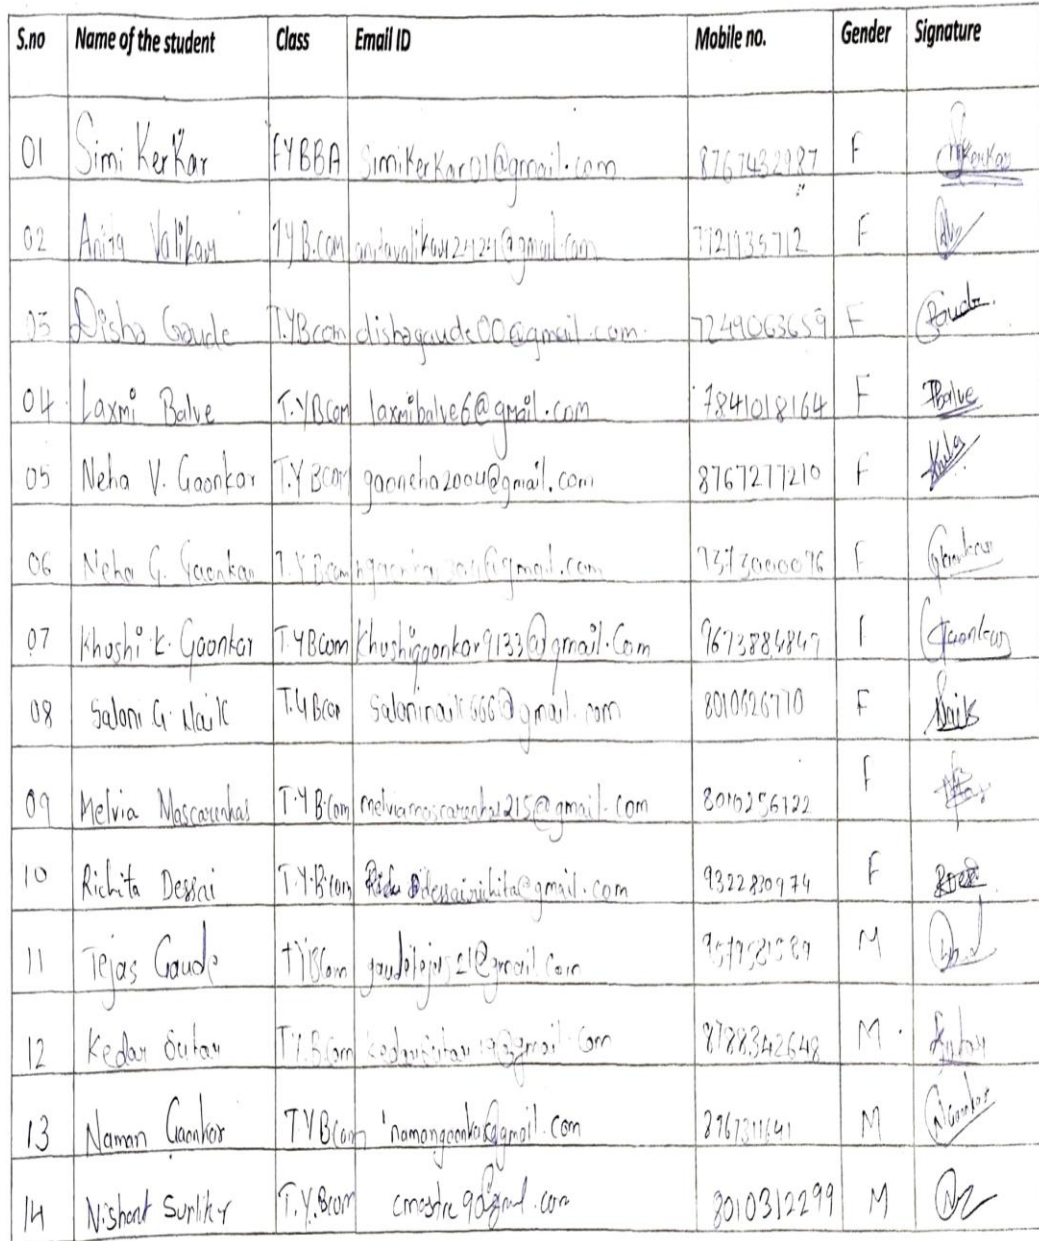 S.no Name of the student Class Email ID Mobile no. Gender Signature
01 Simi Kerkar FYBBA Simikerkar01@gmail.com 8767432987 F Skerkar
02 Anita Valikar TYB.com F
03 Disha Gaude T.YBcom dishagaude00@gmail.com 7249063659 F Gaude
04 Laxmi Balve T.YBcom laxmibalve6@gmail.com 7841018164 F Balve
05 Neha V. Gaonkar T.YBcom gaoneha2004@gmail.com 8767277210 F
06 Neha G. Gaonkar T.YBcom F Gaonkar
07 Khushi K. Gaonkar T.YBcom Khushigaonkar9133@gmail.Com 9673884847 F Gaonkar
08 Saloni G. Naik T.YBcom Saloninaik666@gmail.com 8010626770 F Naik
09 Melvia Mascarenhas T.YB.Com melviamascarenhas215@gmail.com 8010256722 F
10 Richita Dessai T.Y.B.com dessairichita@gmail.com 9322830974 F
11 Tejas Gaude TYBCom M
12 Kedar Sutar T.Y.B.Com 8788342648 M Sutar
13 Naman Gaonkar T.YBcom namangaonkar@gmail.com M NGaonkar
14 Nishant Surlikr T.Y.Bcom 8010312299 M